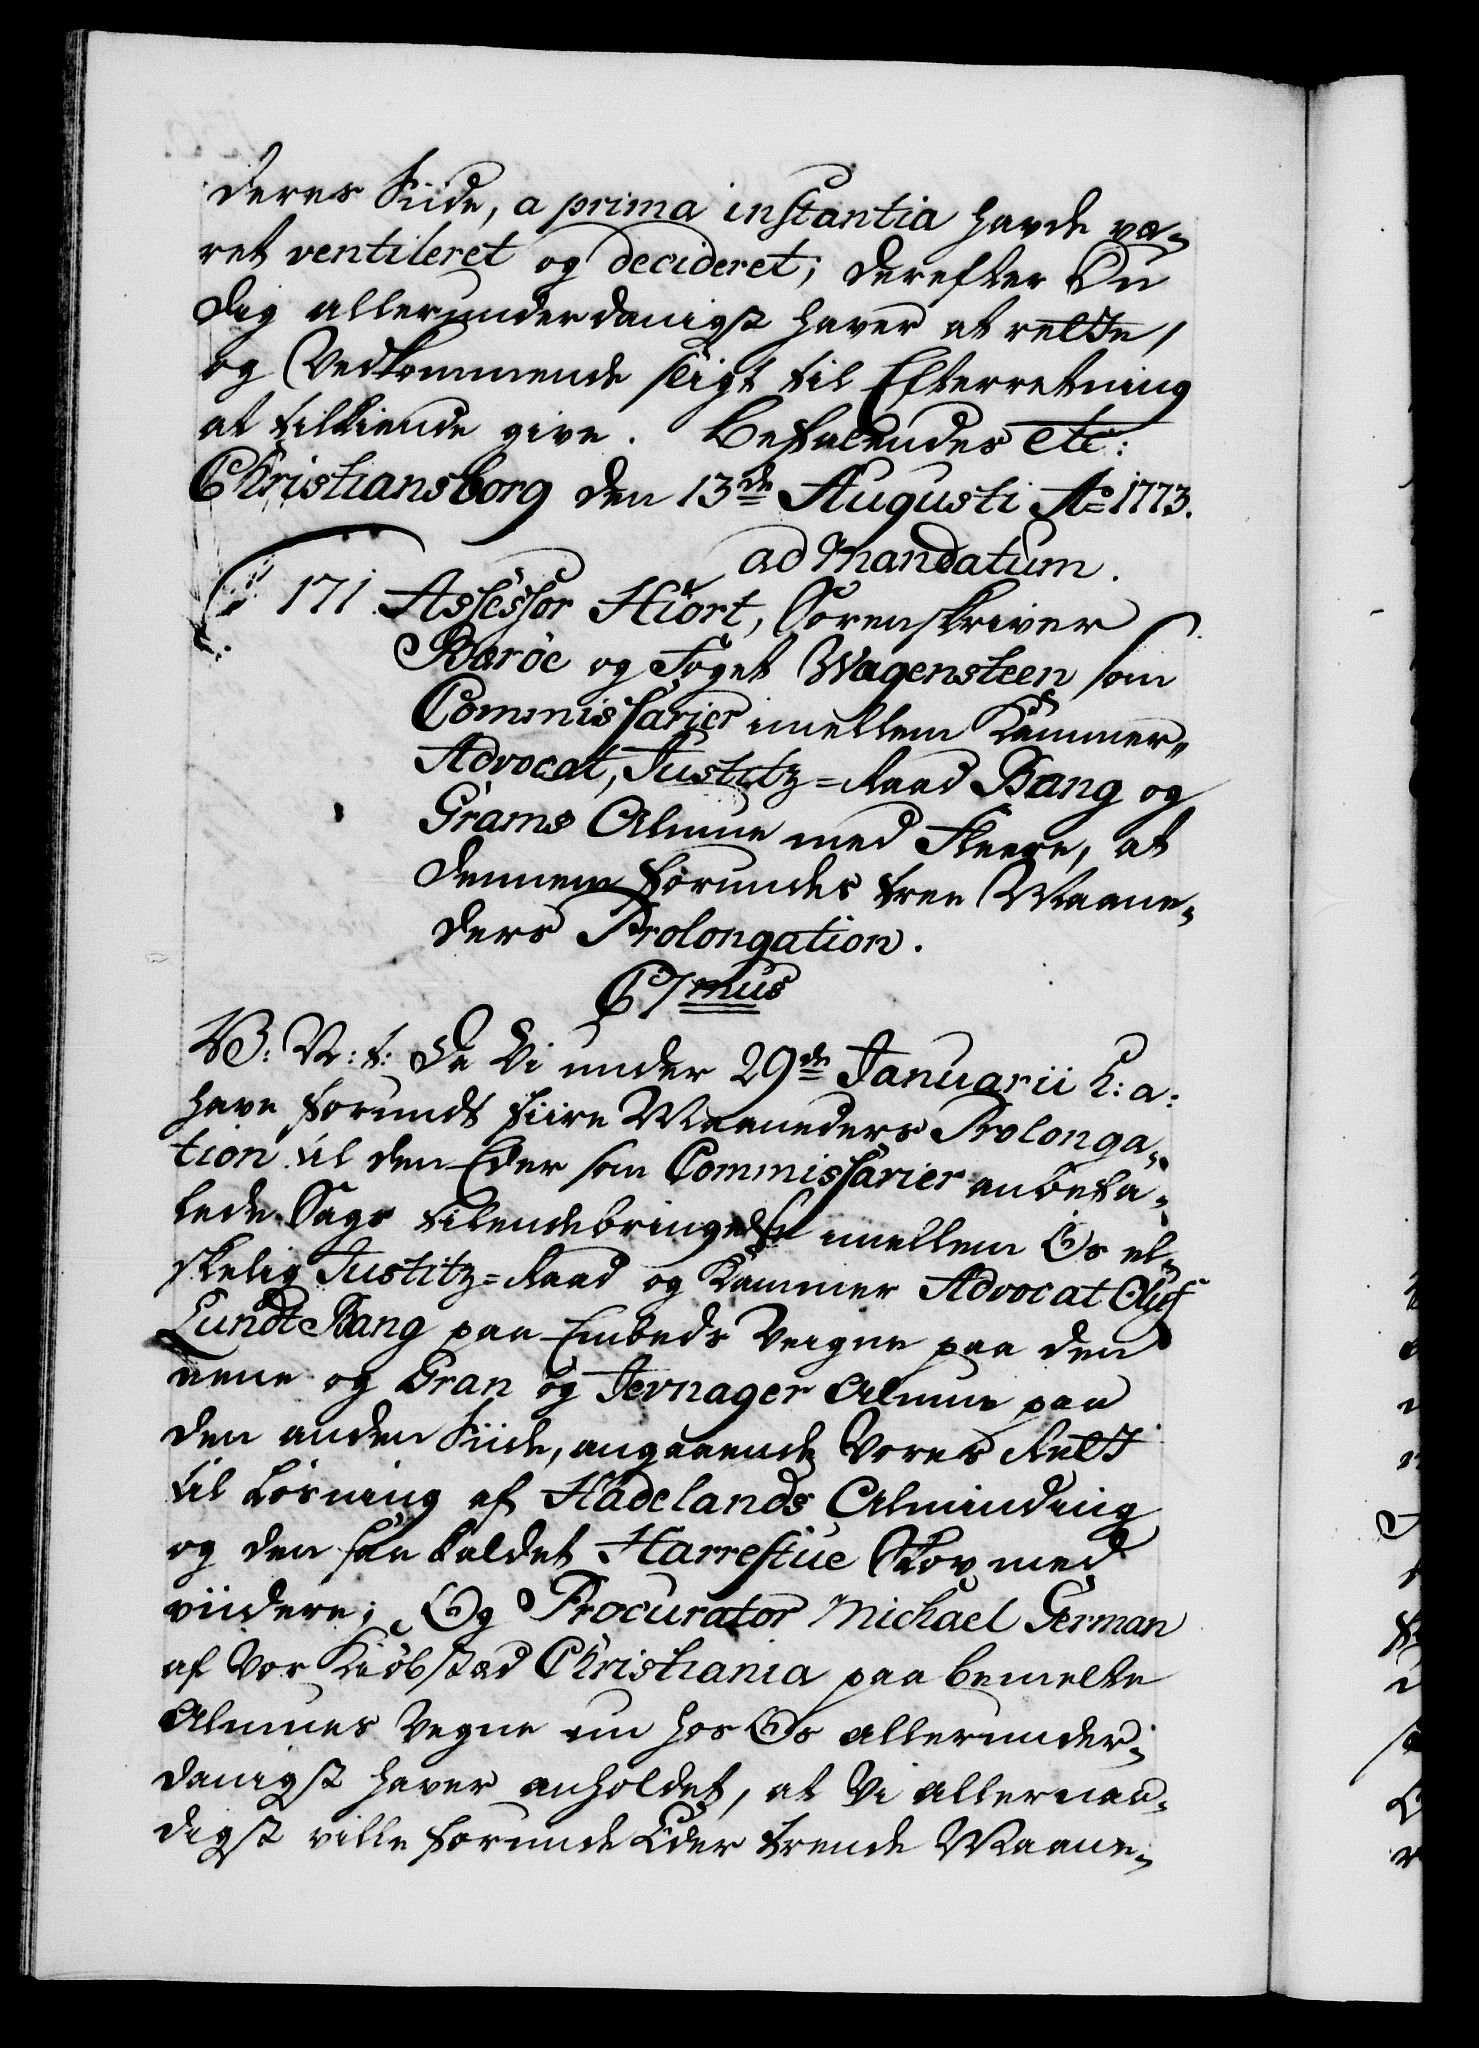 deres Siide, a prima instantia havde væ-
ret ventileret og decideret; derefter Du
dig allerunderdanigst haver at rette,
og Vedkommende sligt til Efterretning
at tilkiende give. Befalendes etc:
Christiansborg den 13de Augusti Ao 1773.
ad Mandatum.
171 Assessor Hiort, Sorenskriver
Barøe og Foget Wagensteen som
Commissarier imellem Kammer-
Advocat, Justitz-Raad Bang og
Grams Almue med Fleere, at
dennem forundes tree Maane-
ders Prolongation.
C7mus
V: V: t: Da Vi under 29de Januarii h: a:
have forundt fiire Maaneders Prolonga-
tion til den Eder som Commissarier anbefa-
lede Sags tilendebringelse imellem Os el-
skelig Justitz-Raad og Kammer Advocat Oluf
Lundt Bang paa Embeds Veigne paa den
eene og Gran og Jevnager Almue paa
den anden Siide, angaaende Vores Rett
til Løsning af Hadelands Alminding
og den saa kaldet Harrestue Skov med
viidere; Og Procurator Michael German
af Vor Kiøbstæd Christiania paa bemelte
Almues Vegne nu hos Os allerunder-
danigst haver anholdet, at Vi allernaa-
digst ville forunde Eder trende Maane-